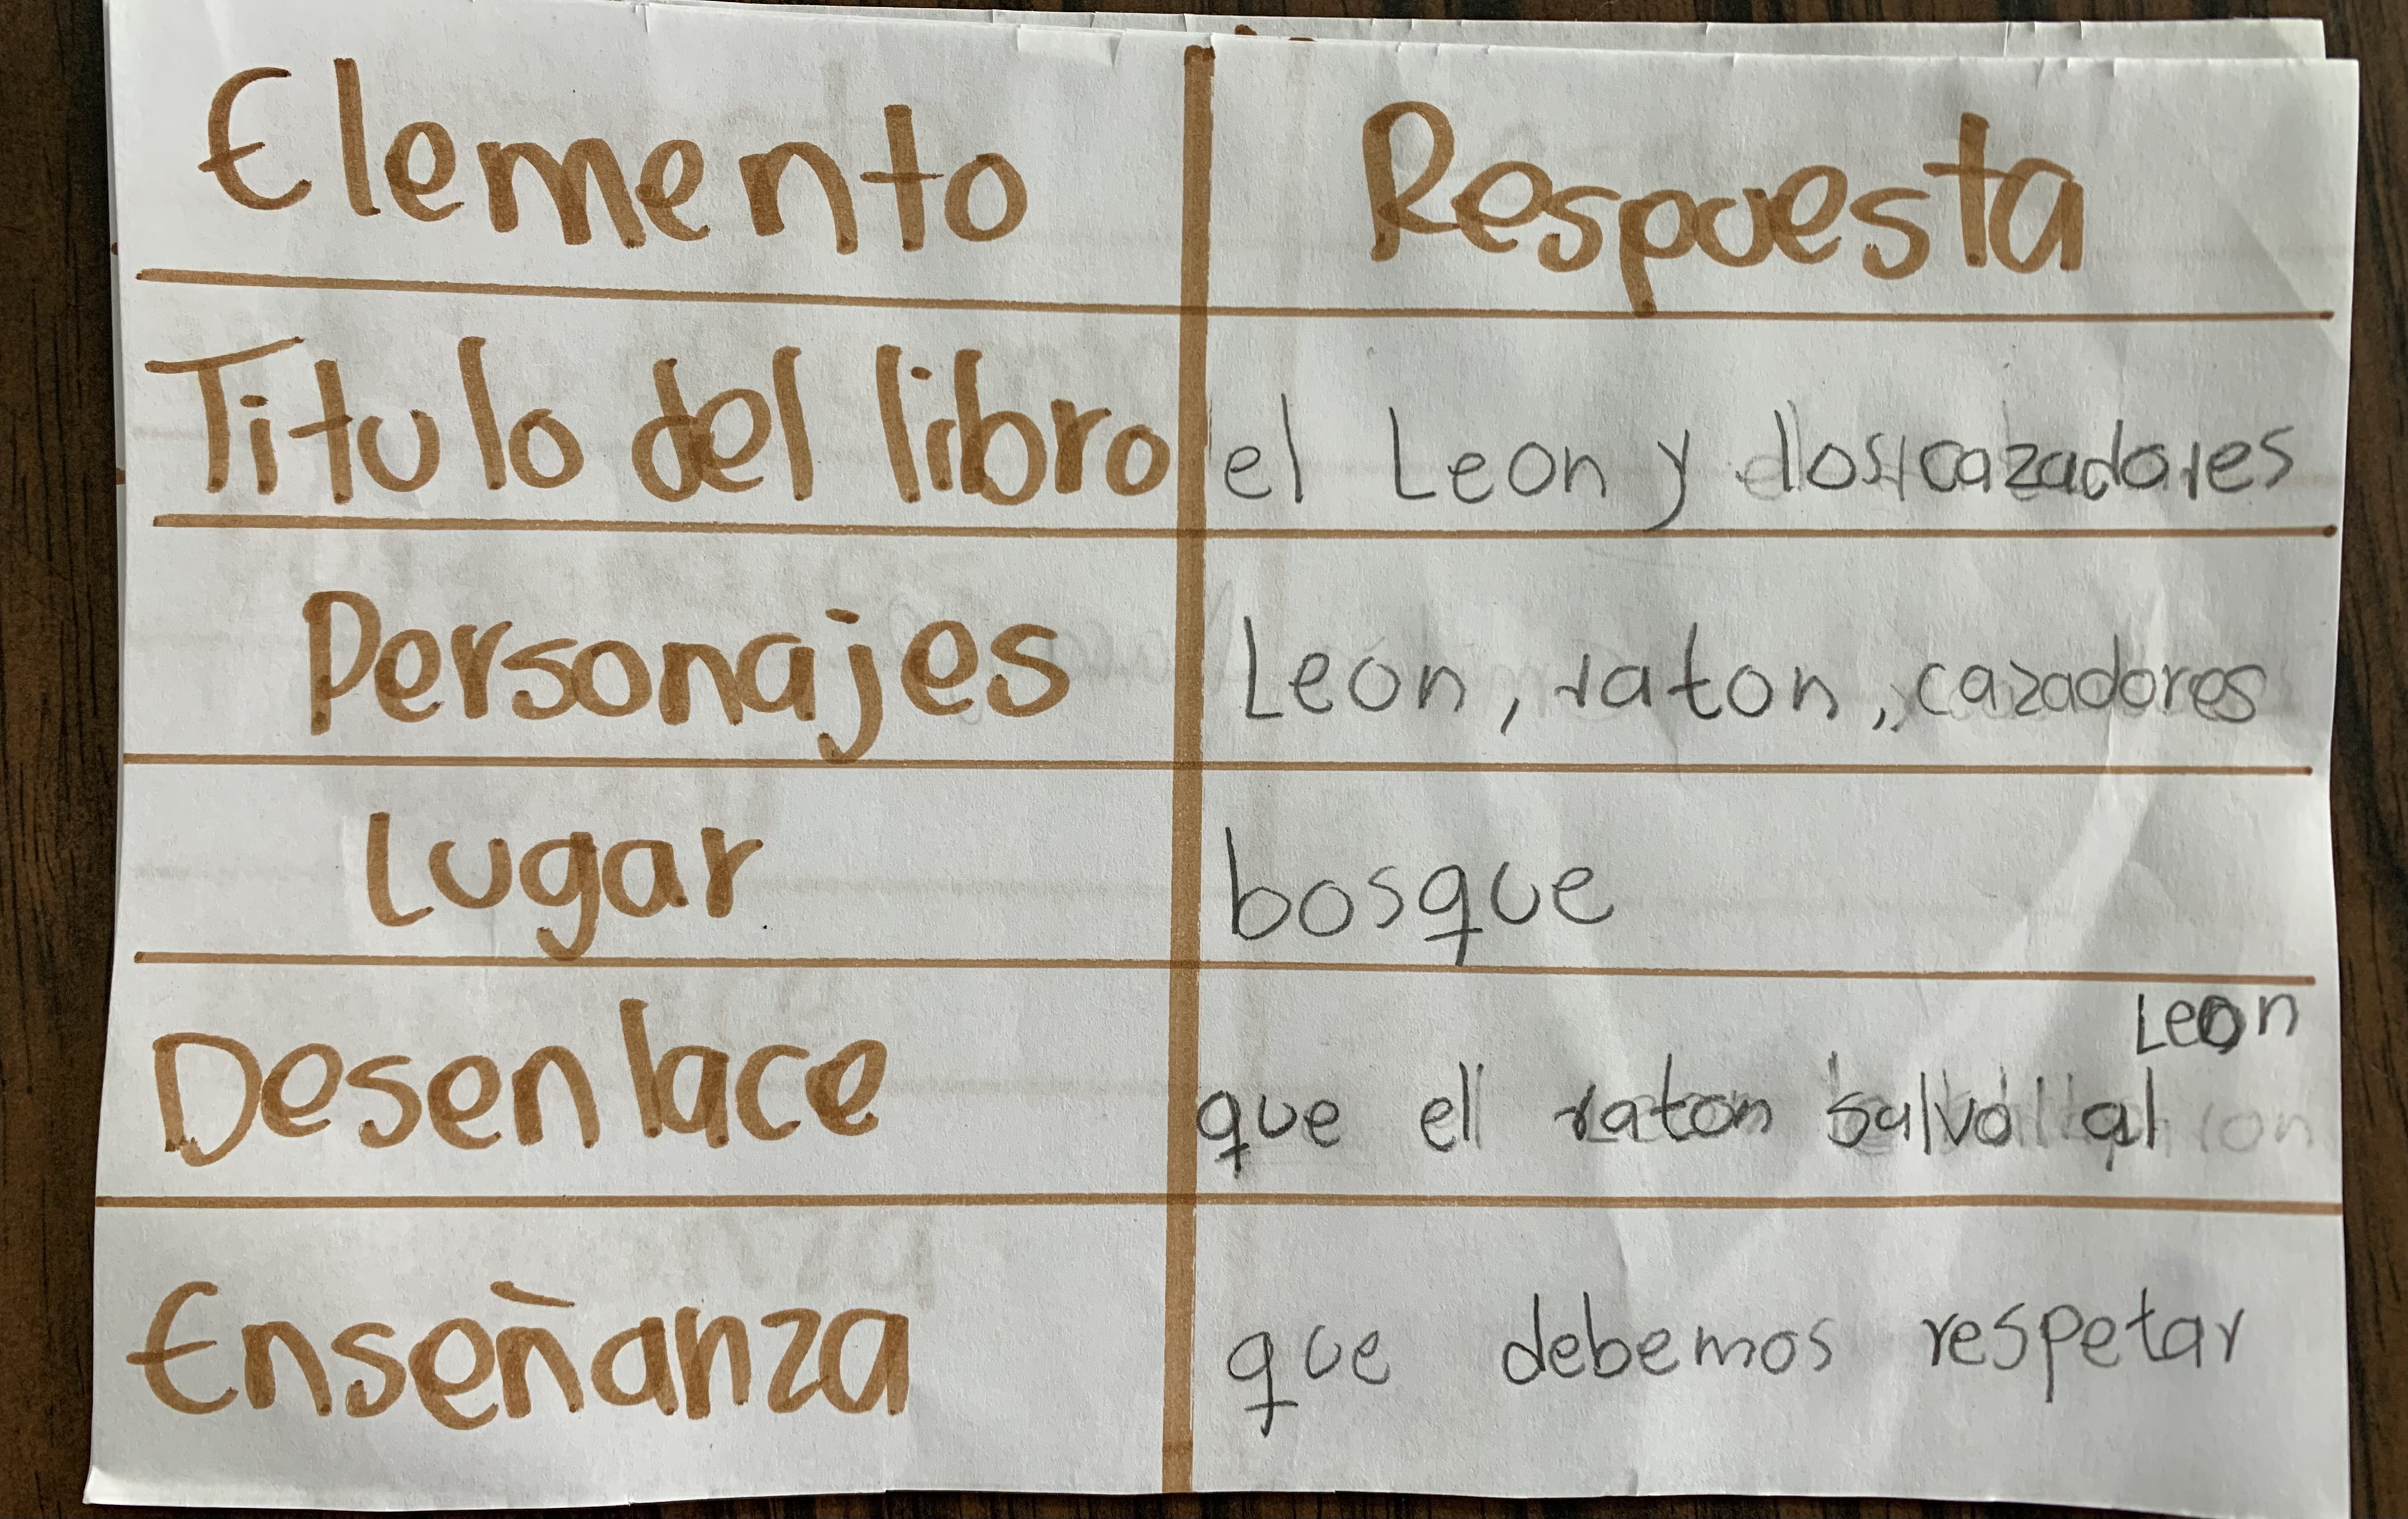 Elemento Respuesta
Titulo del libro el Leon y los cazadores
Personajes Leon, raton, cazadores
Lugar bosque
Leon
Desenlace que el raton salvo al
Enseñanza que debemos respetar